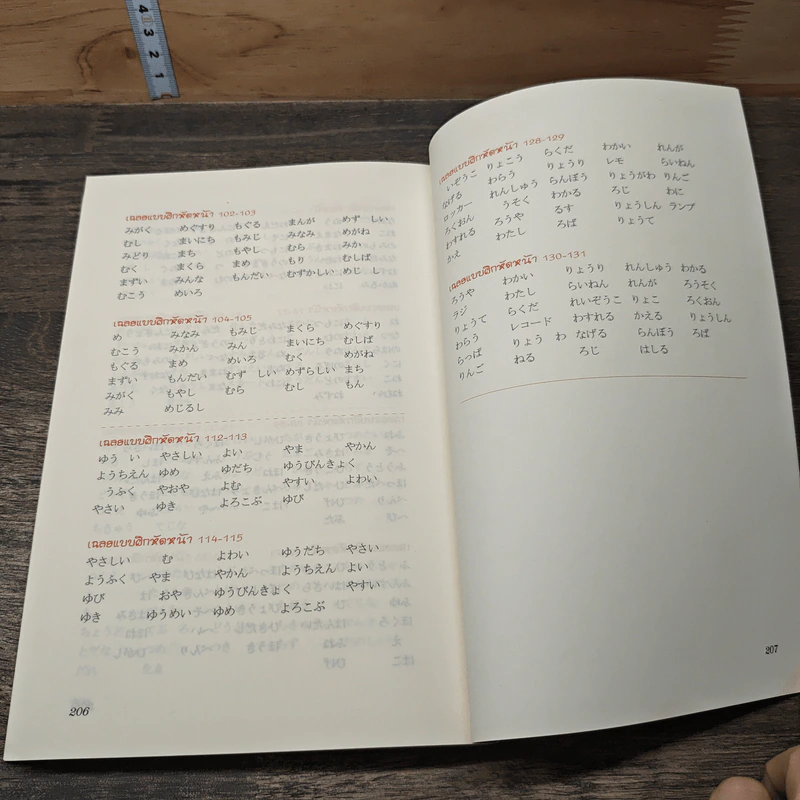 4
3
2
1
เฉลยแบบฝึกหัดหน้า 102-103
みがく めぐすり もぐる まんが めず しい
むし まいにち もみじ みなみ めがね
みどり まち もやし むら みか
むく まくら まめ もり むしば
まずい みんな もんだい むずかしい めじ し
むこう めいろ
เฉลยแบบฝึกหัดหน้า 104-105
め みなみ もみじ まくら めぐすり
むこう みかん みん まいにち むしば
もぐる まめ めいろ むく めがね
まずい もんだい むず しい めずらしい まち
みがく もやし むら むし もん
みみ めじるし
เฉลยแบบฝึกหัดหน้า 112-113
ゆう い やさしい よい やま やかん
ようちえん ゆめ ゆだち ゆうびんきょく
うふく やおや よむ やすい よわい
やさい ゆき よろこぶ ゆび
เฉลยแบบฝึกหัดหน้า 114-115
やさしい む よわい ゆうだち やさい
ようふく やま やかん ようちえん よい
ゆび おや ゆうびんきょく やすい
ゆき ゆうめい ゆめ よろこぶ
206
เฉลยแบบฝึกหัดหน้า 128-129
いぞうこ りょこう らくだ わかい れんが
なげる わらう りょうり レモ らいねん
ロッカー れんしゅう らんぼう りょうがわ りんご
ろくおん うそく わかる ろじ わに
わすれる ろうや るす りょうしん ランプ
かえ わたし ろば りょうて
เฉลยแบบฝึกหัดหน้า 130-131
ろうや わかい りょうり れんしゅう わかる
ラジ わたし らいねん れんが ろうそく
りょうて らくだ れいぞうこ りょこ ろくおん
わらう レコード わすれる かえる りょうしん
らっぱ りょう わ なげる らんぼう ろば
りんご ねる ろじ はしる
207